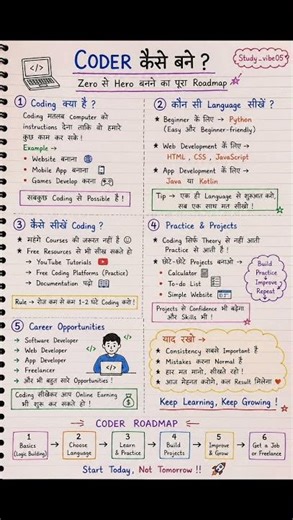 CODER कैसे बने ?
Study_vibe05
Zero से Hero बनने का पूरा Roadmap
① Coding क्या है ?
Coding मतलब Computer को
instructions देना ताकि वो हमारे
कुछ काम कर सके !
Example →
Website बनाना
Mobile App बनाना
Games Develop करना
सबकुछ Coding से Possible है !
② कौन सी Language सीखें ?
★ Beginner के लिए → Python
(Easy और Beginner-friendly)
★ Web Development के लिए
→ HTML, CSS, JavaScript
★ App Development के लिए
→ Java या Kotlin
Tip → एक ही Language से शुरुआत करो,
सब एक साथ मत सीखो !
③ कैसे सीखें Coding ?
★ महंगे Courses की जरूरत नहीं है
★ Free Resources से भी सीख सकते हो
→ YouTube Tutorials
→ Free Coding Platforms (Practice)
→ Documentation पढ़ो
Rule → रोज कम से कम 1-2 घंटे Coding करो !
④ Practice & Projects
★ Coding सिर्फ Theory से नहीं आती
Practice से आती है !
★ छोटे-छोटे Projects बनाओ →
Calculator
To-do List
Simple Website
Build
Practice
Improve
Repeat
Projects से Confidence भी बढ़ेगा
और Skills भी !
⑤ Career Opportunities
→ Software Developer
→ Web Developer
→ App Developer
→ Freelancer
→ और भी बहुत सारे Opportunities !
Coding सीखकर आप Online Earning
भी शुरू कर सकते हो !
याद रखो →
★ Consistency सबसे Important है
★ Mistakes करना Normal है
★ हार मत मानो, सीखते रहो !
★ आज मेहनत करोगे, कल Result मिलेगा
Keep Learning, Keep Growing !
CODER ROADMAP
1 Basics (Logic Building)
2 Choose Language
3 Learn & Practice
4 Build Projects
5 Improve & Grow
6 Get a Job or Freelance
Start Today, Not Tomorrow !!